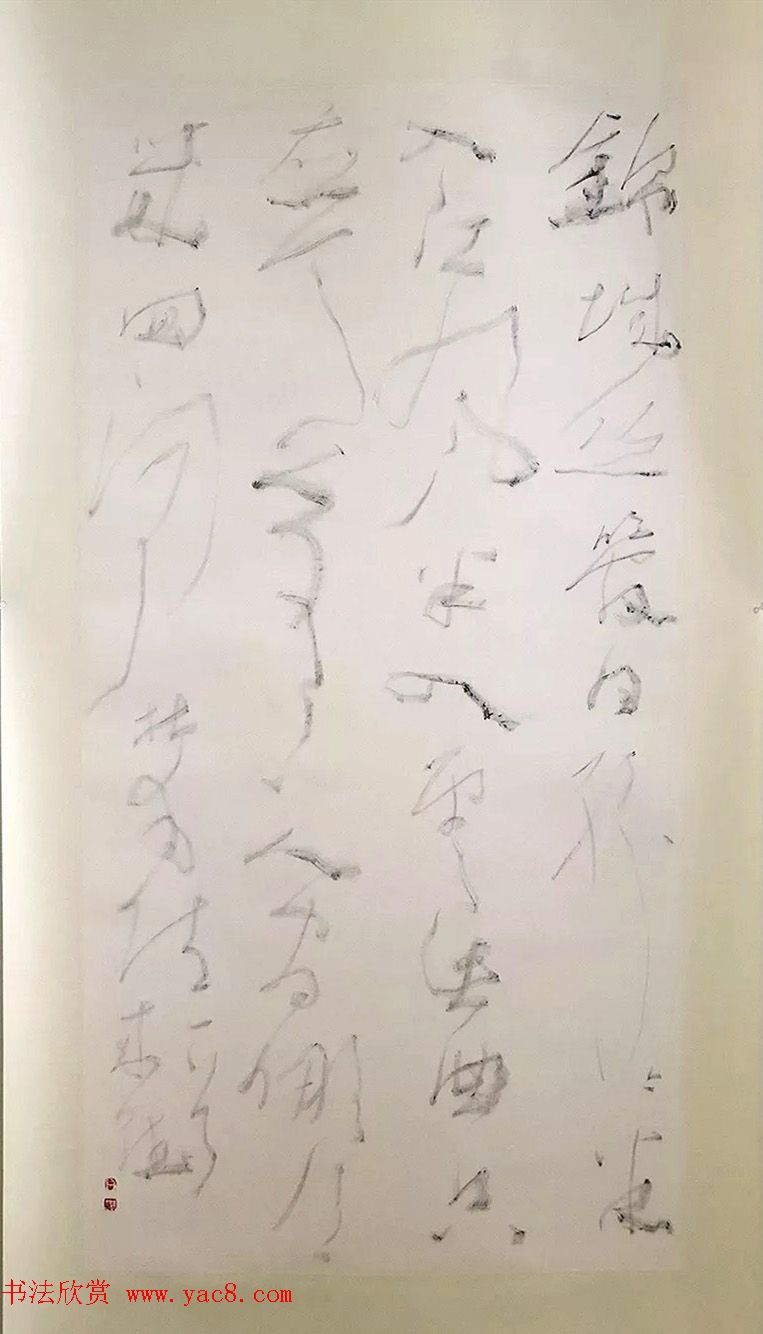 錦城絲管日紛〻半
入江風半入雲此曲只
應天上有人間得
幾回聞 杜甫詩一首
书法欣赏 www.yac8.com